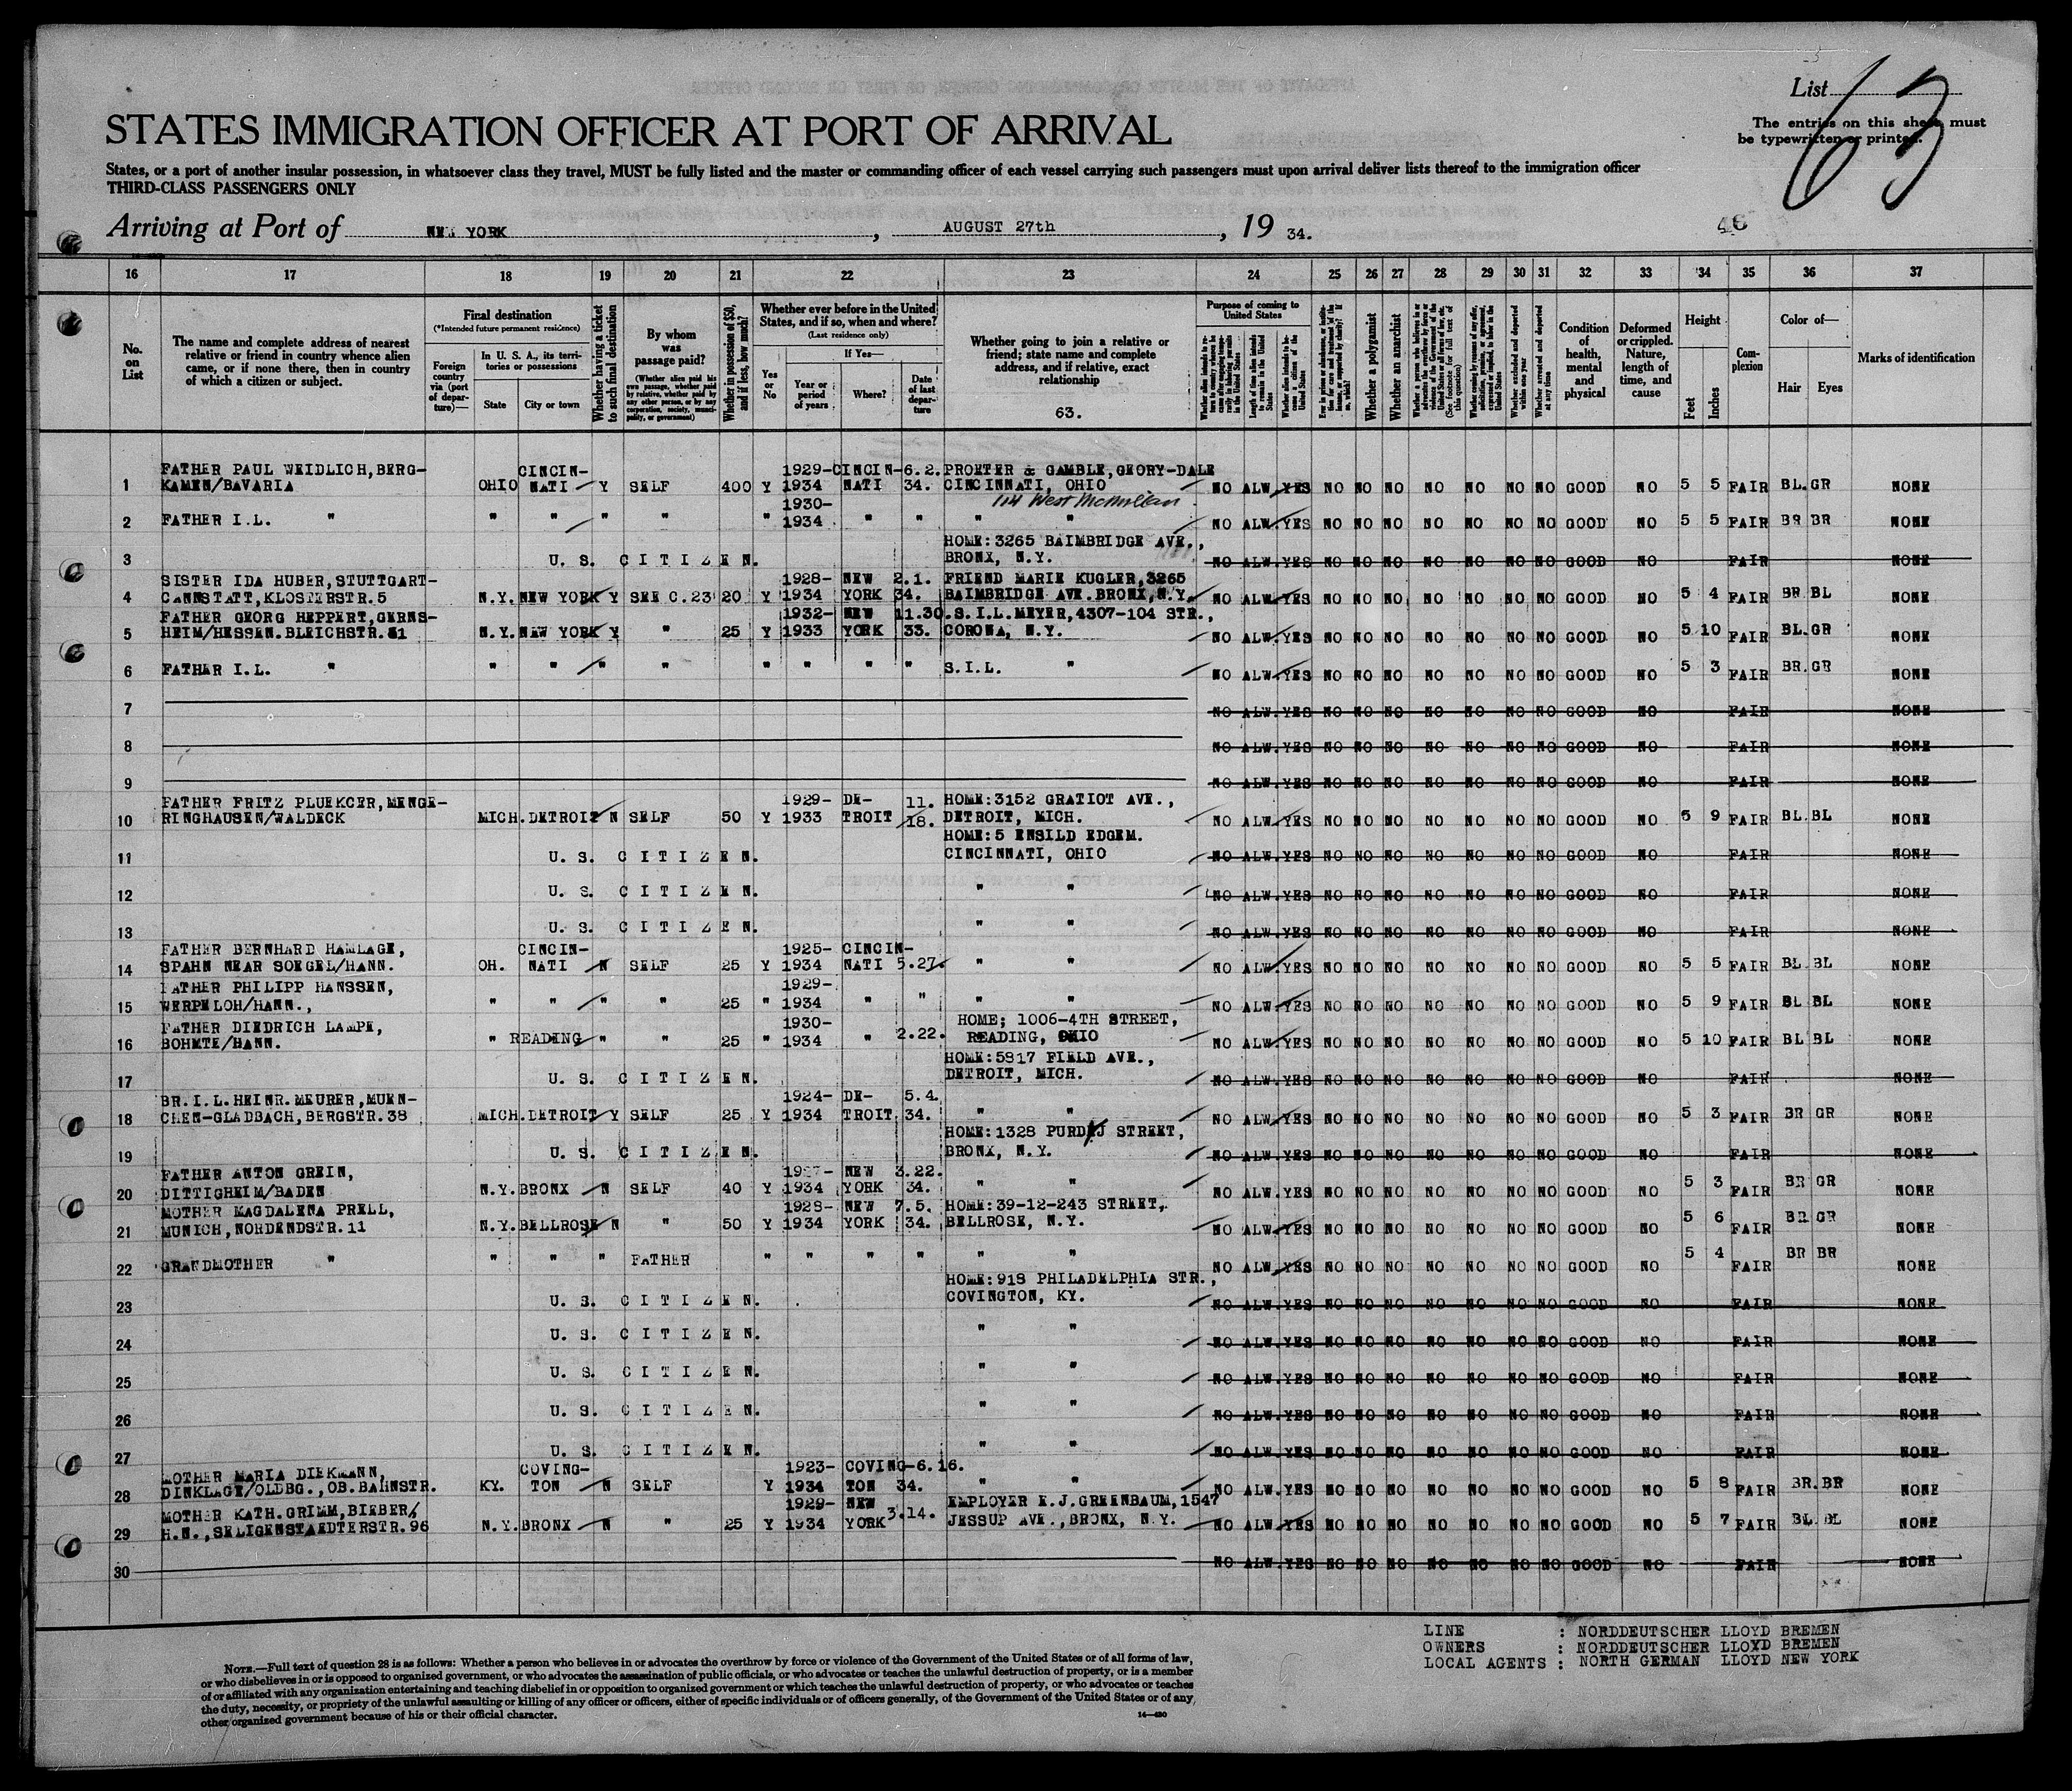 List
63
The entries on this sheet must
be typewritten or printed.
STATES IMMIGRATION OFFICER AT PORT OF ARRIVAL
States, or a port of another insular possession, in whatsoever class they travel, MUST be fully listed and the master or commanding officer of each vessel carrying such passengers must upon arrival deliver lists thereof to the immigration officer
THIRD-CLASS PASSENGERS ONLY
Arriving at Port of NEW YORK, AUGUST 27th, 19 34.
16 17 18 19 20 21 22 23 24 25 26 27 28 29 30 31 32 33 34 35 36 37
No. on List
The name and complete address of nearest relative or friend in country whence alien came, or if none there, then in country of which a citizen or subject.
Final destination
(*Intended future permanent residence)
Foreign country via (port of departure)—
In U. S. A., its territories or possessions
State
City or town
Whether having a ticket to such final destination
By whom was passage paid?
(Whether alien paid his own passage, whether paid by relative, whether paid by any other person, or by any corporation, society, municipality, or government)
Whether in possession of $50, and if less, how much?
Whether ever before in the United States, and if so, when and where?
(Last residence only)
Yes or No
If Yes—
Year or period of years
Where?
Date of last departure
Whether going to join a relative or friend; state name and complete address, and if relative, exact relationship
63.
Purpose of coming to United States
Length of time alien intends to remain in the United States
Whether a polygamist
Whether an anarchist
Whether excluded and deported within one year
Whether arrested and deported at any time
Condition of health, mental and physical
Deformed or crippled. Nature, length of time, and cause
Height
Feet
Inches
Complexion
Color of—
Hair
Eyes
Marks of identification
1 FATHER PAUL WEIDLICH, BERG-KAMEN/BAVARIA OHIO CINCIN-NATI Y SELF 400 Y 1929-1934 CINCIN-NATI 6.2.34. PROETER & GAMBLE, GEORY-DALE CINCINNATI, OHIO NO ALW. YES NO NO NO NO NO NO NO GOOD NO 5 5 FAIR BL. GR NONE
114 West McMillan
2 FATHER I.L. " " " " " " 1930-1934 " " " " NO ALW. YES NO NO NO NO NO NO NO GOOD NO 5 5 FAIR BR BR NONE
3 U. S. CITIZEN. HOME: 3265 BAIMBRIDGE AVE., BRONX, N.Y. NO ALW. YES NO NO NO NO NO NO NO GOOD NO FAIR NONE
4 SISTER IDA HUBER, STUTTGART-CANNSTATT, KLOSTERSTR.5 N.Y. NEW YORK Y SEE C.23 20 Y 1928-1934 NEW YORK 2.1.34. FRIEND MARIE KUGLER, 3265 BAIMBRIDGE AVE. BRONX, N.Y. NO ALW. YES NO NO NO NO NO NO NO GOOD NO 5 4 FAIR BR BL NONE
5 FATHER GEORG HEPPERT, GERNS-HEIM/HESSEN. BLEICHSTR. 31 N.Y. NEW YORK Y " 25 Y 1932-1933 NEW YORK 11.30.33. S.I.L. MEYER, 4307-104 STR., CORONA, N.Y. NO ALW. YES NO NO NO NO NO NO NO GOOD NO 5 10 FAIR BL. GR NONE
6 FATHER I.L. " " " " " " " " " " S.I.L. " NO ALW. YES NO NO NO NO NO NO NO GOOD NO 5 3 FAIR BR. GR NONE
7 NO ALW. YES NO NO NO NO NO NO NO GOOD NO FAIR NONE
8 NO ALW. YES NO NO NO NO NO NO NO GOOD NO FAIR NONE
9 NO ALW. YES NO NO NO NO NO NO NO GOOD NO FAIR NONE
10 FATHER FRITZ PLUEKCER, MENGE-RINGHAUSEN/WALDECK MICH. DETROIT N SELF 50 Y 1929-1933 DE-TROIT 11.18. HOME: 3152 GRATIOT AVE., DETROIT, MICH. NO ALW. YES NO NO NO NO NO NO NO GOOD NO 5 9 FAIR BL. BL NONE
11 U. S. CITIZEN. HOME: 5 ENSILD EDGEM. CINCINNATI, OHIO NO ALW. YES NO NO NO NO NO NO NO GOOD NO FAIR NONE
12 U. S. CITIZEN. " " NO ALW. YES NO NO NO NO NO NO NO GOOD NO FAIR NONE
13 U. S. CITIZEN. " " NO ALW. YES NO NO NO NO NO NO NO GOOD NO FAIR NONE
14 FATHER BERNHARD HAMLAGE, SPAHN NEAR SOEGEL/HANN. OH. CINCIN-NATI N SELF 25 Y 1925-1934 CINCIN-NATI 5.27. " " NO ALW. YES NO NO NO NO NO NO NO GOOD NO 5 5 FAIR BL BL NONE
15 FATHER PHILIPP HANSSEN, WERPELOH/HANN., " " " " 25 " 1929-1934 " " " " NO ALW. YES NO NO NO NO NO NO NO GOOD NO 5 9 FAIR BL BL NONE
16 FATHER DIEDRICH LAMPE, BOHMTE/HANN. " READING " " 25 " 1930-1934 " 2.22. HOME; 1006-4TH STREET, READING, OHIO NO ALW. YES NO NO NO NO NO NO NO GOOD NO 5 10 FAIR BL BL NONE
17 U. S. CITIZEN. HOME: 5817 FIELD AVE., DETROIT, MICH. NO ALW. YES NO NO NO NO NO NO NO GOOD NO FAIR NONE
18 BR. I.L. HEINR. MEURER, MUEN-CHEN-GLADBACH, BERGSTR.38 MICH. DETROIT Y SELF 25 Y 1924-1934 DE-TROIT 5.4.34. " " NO ALW. YES NO NO NO NO NO NO NO GOOD NO 5 3 FAIR BR GR NONE
19 U. S. CITIZEN. HOME: 1328 PURDY STREET, BRONX, N.Y. NO ALW. YES NO NO NO NO NO NO NO GOOD NO FAIR NONE
20 FATHER ANTON GREIN, DITTIGHEIM/BADEN N.Y. BRONX N SELF 40 Y 1927-1934 NEW YORK 3.22.34. " " NO ALW. YES NO NO NO NO NO NO NO GOOD NO 5 3 FAIR BR GR NONE
21 MOTHER MAGDALENA PRELL, MUNICH, NORDENDSTR.11 N.Y. BELLROSE N " 50 Y 1928-1934 NEW YORK 7.5.34. HOME: 39-12-243 STREET, BELLROSE, N.Y. NO ALW. YES NO NO NO NO NO NO NO GOOD NO 5 6 FAIR BR GR NONE
22 GRANDMOTHER " " " " FATHER " " " " " " NO ALW. YES NO NO NO NO NO NO NO GOOD NO 5 4 FAIR BR BR NONE
23 U. S. CITIZEN. HOME: 918 PHILADELPHIA STR., COVINGTON, KY. NO ALW. YES NO NO NO NO NO NO NO GOOD NO FAIR NONE
24 U. S. CITIZEN. " " NO ALW. YES NO NO NO NO NO NO NO GOOD NO FAIR NONE
25 U. S. CITIZEN. " " NO ALW. YES NO NO NO NO NO NO NO GOOD NO FAIR NONE
26 U. S. CITIZEN. " " NO ALW. YES NO NO NO NO NO NO NO GOOD NO FAIR NONE
27 U. S. CITIZEN. " " NO ALW. YES NO NO NO NO NO NO NO GOOD NO FAIR NONE
28 MOTHER MARIA DIEKMANN, DINKLAGE/OLDBG., OB. BAHNSTR. KY. COVING-TON N SELF Y 1923-1934 COVING-TON 6.16.34. " " NO ALW. YES NO NO NO NO NO NO NO GOOD NO 5 8 FAIR BR. BR NONE
29 MOTHER KATH. GRIMM, BIEBER/H.N., SELIGENSTAEDTERSTR. 96 N.Y. BRONX N " 25 Y 1929-1934 NEW YORK 3.14. EMPLOYER E.J. GREENBAUM, 1547 JESSUP AVE., BRONX, N.Y. NO ALW. YES NO NO NO NO NO NO NO GOOD NO 5 7 FAIR BL. BL NONE
30 NO ALW. YES NO NO NO NO NO NO NO GOOD NO FAIR NONE
LINE : NORDDEUTSCHER LLOYD BREMEN
OWNERS : NORDDEUTSCHER LLOYD BREMEN
LOCAL AGENTS : NORTH GERMAN LLOYD NEW YORK
NOTE.—Full text of question 28 is as follows: Whether a person who believes in or advocates the overthrow by force or violence of the Government of the United States or of all forms of law,
or who disbelieves in or is opposed to organized government, or who advocates the assassination of public officials, or who advocates or teaches the unlawful destruction of property, or is a member
of or affiliated with any organization entertaining and teaching disbelief in or opposition to organized government or which teaches the unlawful destruction of property, or who advocates or teaches
the duty, necessity, or propriety of the unlawful assaulting or killing of any officer or officers, either of specific individuals or of officers generally, of the Government of the United States or of any
other organized government because of his or their official character.
14—430